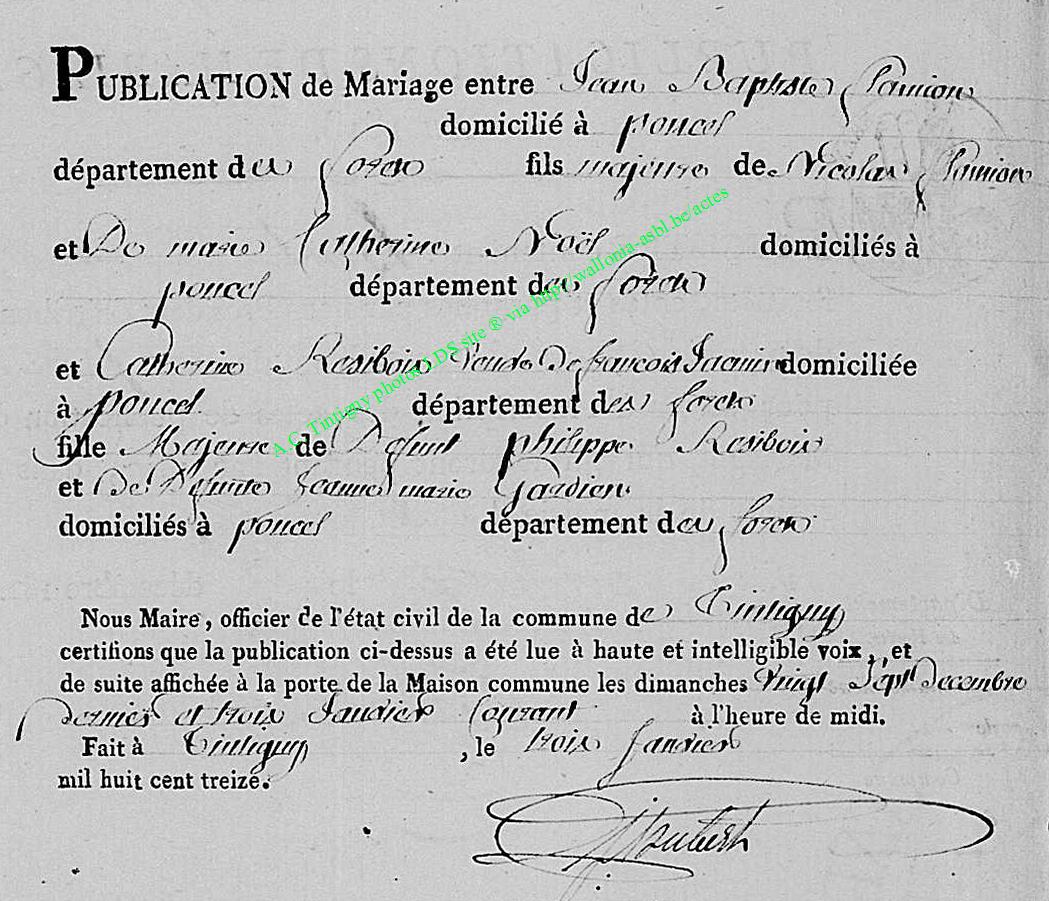 PUBLICATION de Mariage entre Jean Baptiste Pamion
domicilié à poucel
département des foretz fils majeure de Nicolas Pamion
et De marie Catherine Noël domiciliés à
poucel département des foretz
et Catherine Resibois Veuve De francois Jacmin domiciliée
à poucel département des foretz
fille Majeure de Defunt philippe Resibois
et De Defunte Jeanne marie Gardien
domiciliés à poucel département des foretz
Nous Maire, officier de l'état civil de la commune de Tintigny
certifions que la publication ci-dessus a été lue à haute et intelligible voix, et
de suite affichée à la porte de la Maison commune les dimanches Vingt Sept Decembre
Dernier et trois Janvier Courant à l'heure de midi.
Fait à Tintigny, le trois Janvier
mil huit cent treize.
A.C. Tintigny photos LDS site ® via http://wallonia-asbl.be/actes